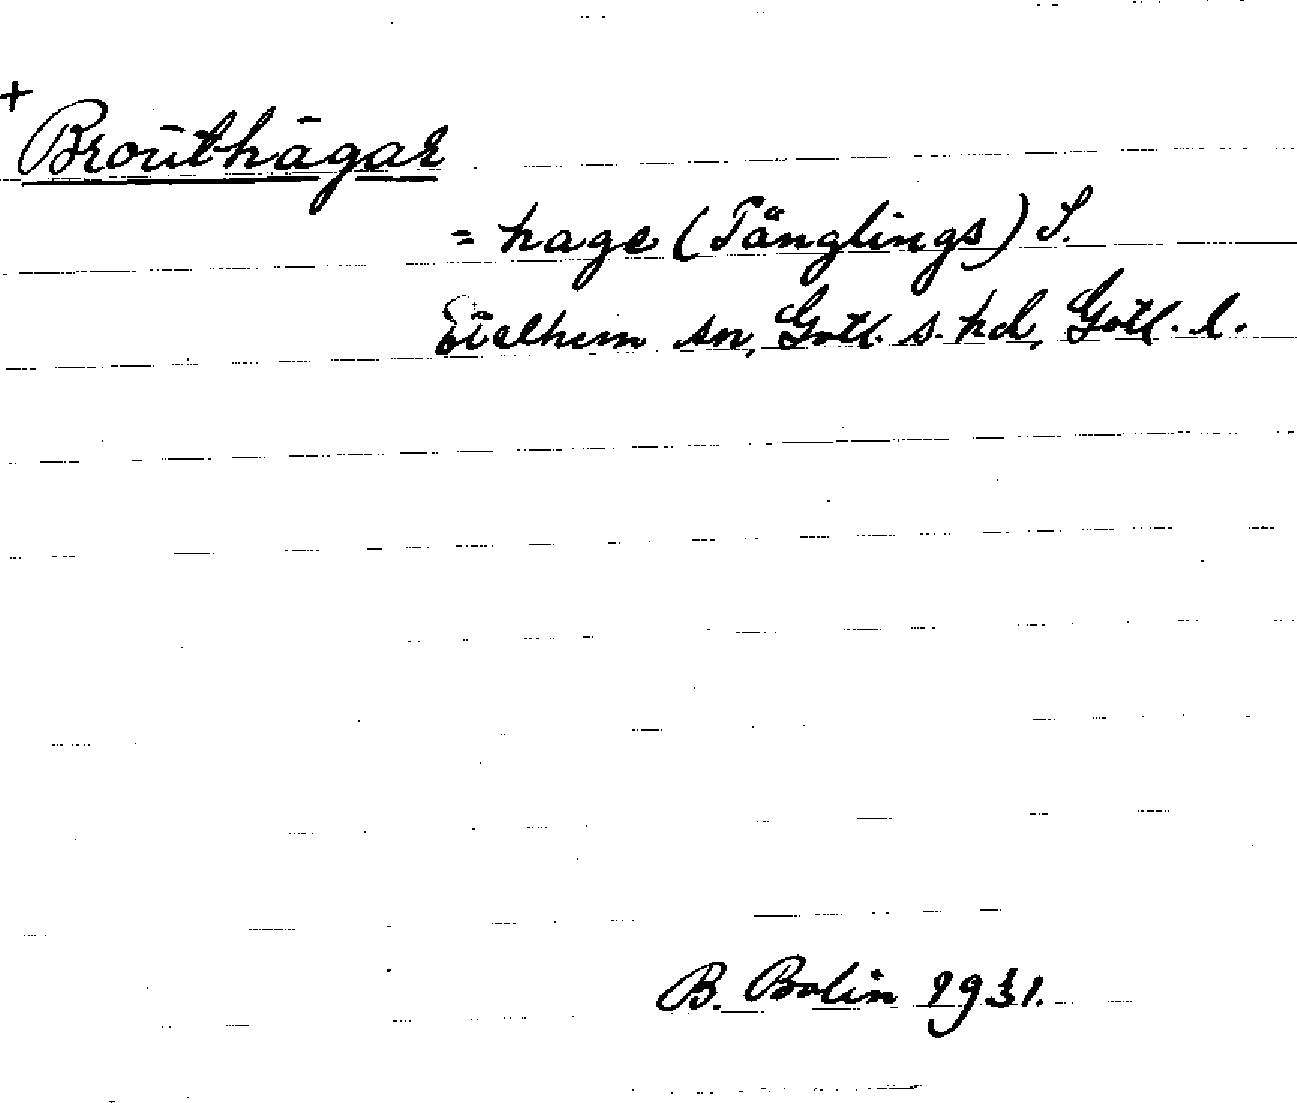 +
Broūthāgar
= hage (Tänglings) S.
Etelhem sn, Gotl. s. hd, Gotl. l.
B. Bolin 1931.